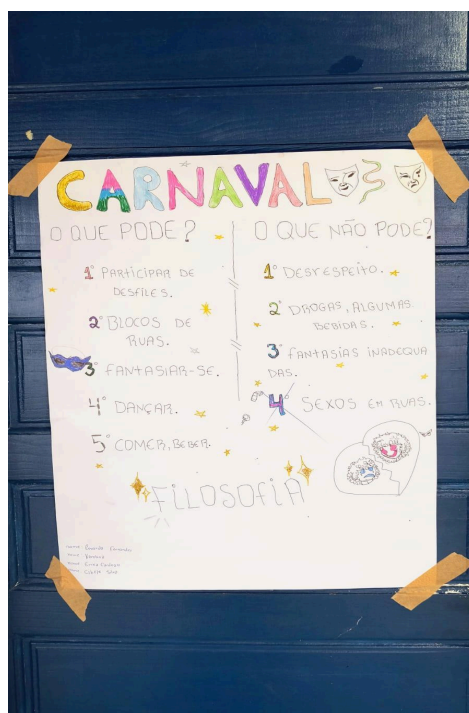 CARNAVAL
O QUE PODE?
1° PARTICIPAR DE
DESFILES.
2° BLOCOS DE
RUAS.
3° FANTASIAR-SE.
4° DANÇAR.
5° COMER, BEBER.
O QUE NÃO PODE?
1° DESRESPEITO.
2° DROGAS, ALGUMAS
BEBIDAS.
3° FANTASIAS INADEQUA
DAS.
4° SEXOS EM RUAS.
FILOSOFIA